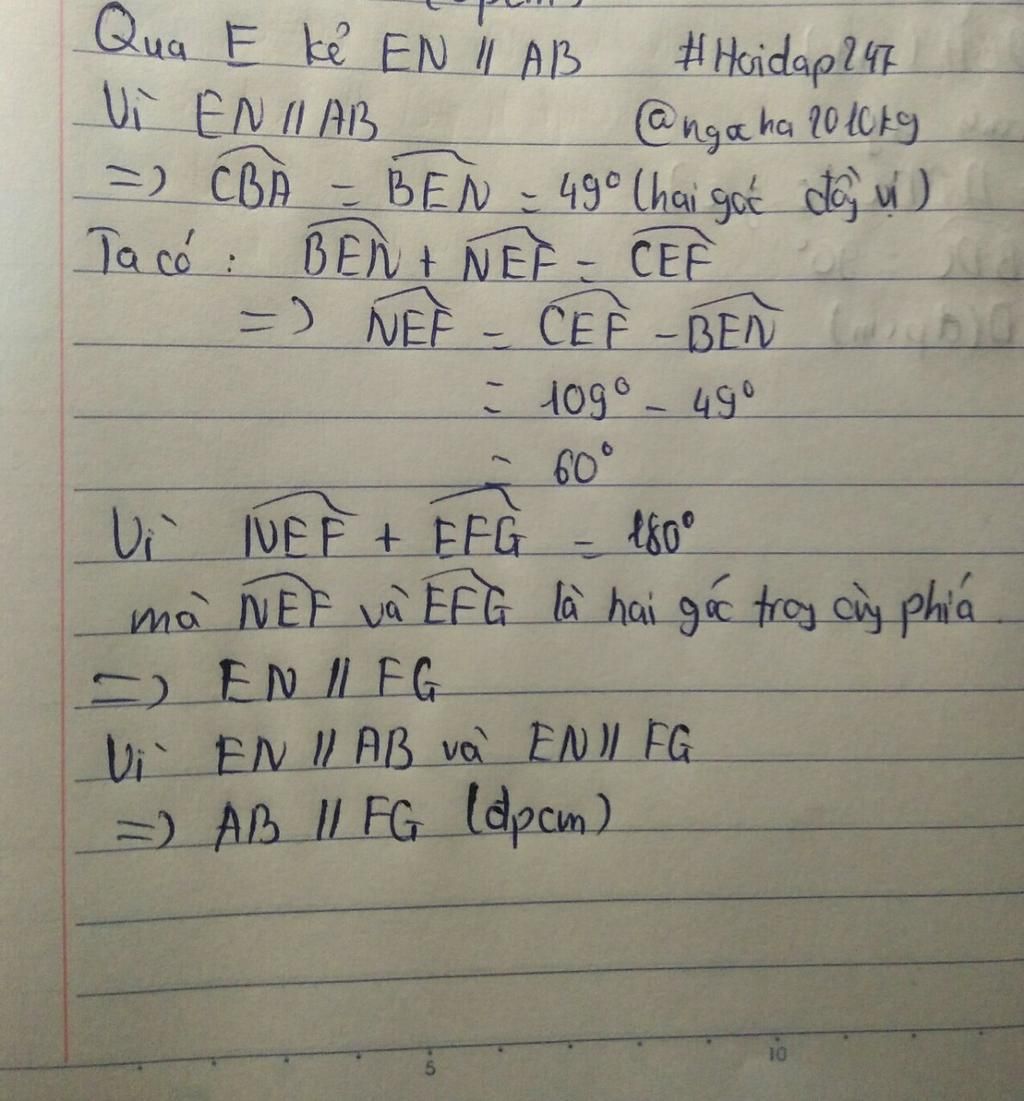 (đpcm)
Qua E kẻ EN // AB #Hoidap247
Vì EN // AB @ngocha2010kg
=> \widehat{CBA} = \widehat{BEN} = 49° (hai góc đồng vị)
Ta có : \widehat{BEN} + \widehat{NEF} = \widehat{CEF}
=> \widehat{NEF} = \widehat{CEF} - \widehat{BEN}
= 109° - 49°
= 60°
Vì \widehat{NEF} + \widehat{EFG} = 180°
mà \widehat{NEF} và \widehat{EFG} là hai góc trong cùng phía.
=> EN // FG
Vì EN // AB và EN // FG
=> AB // FG (đpcm)
5 10